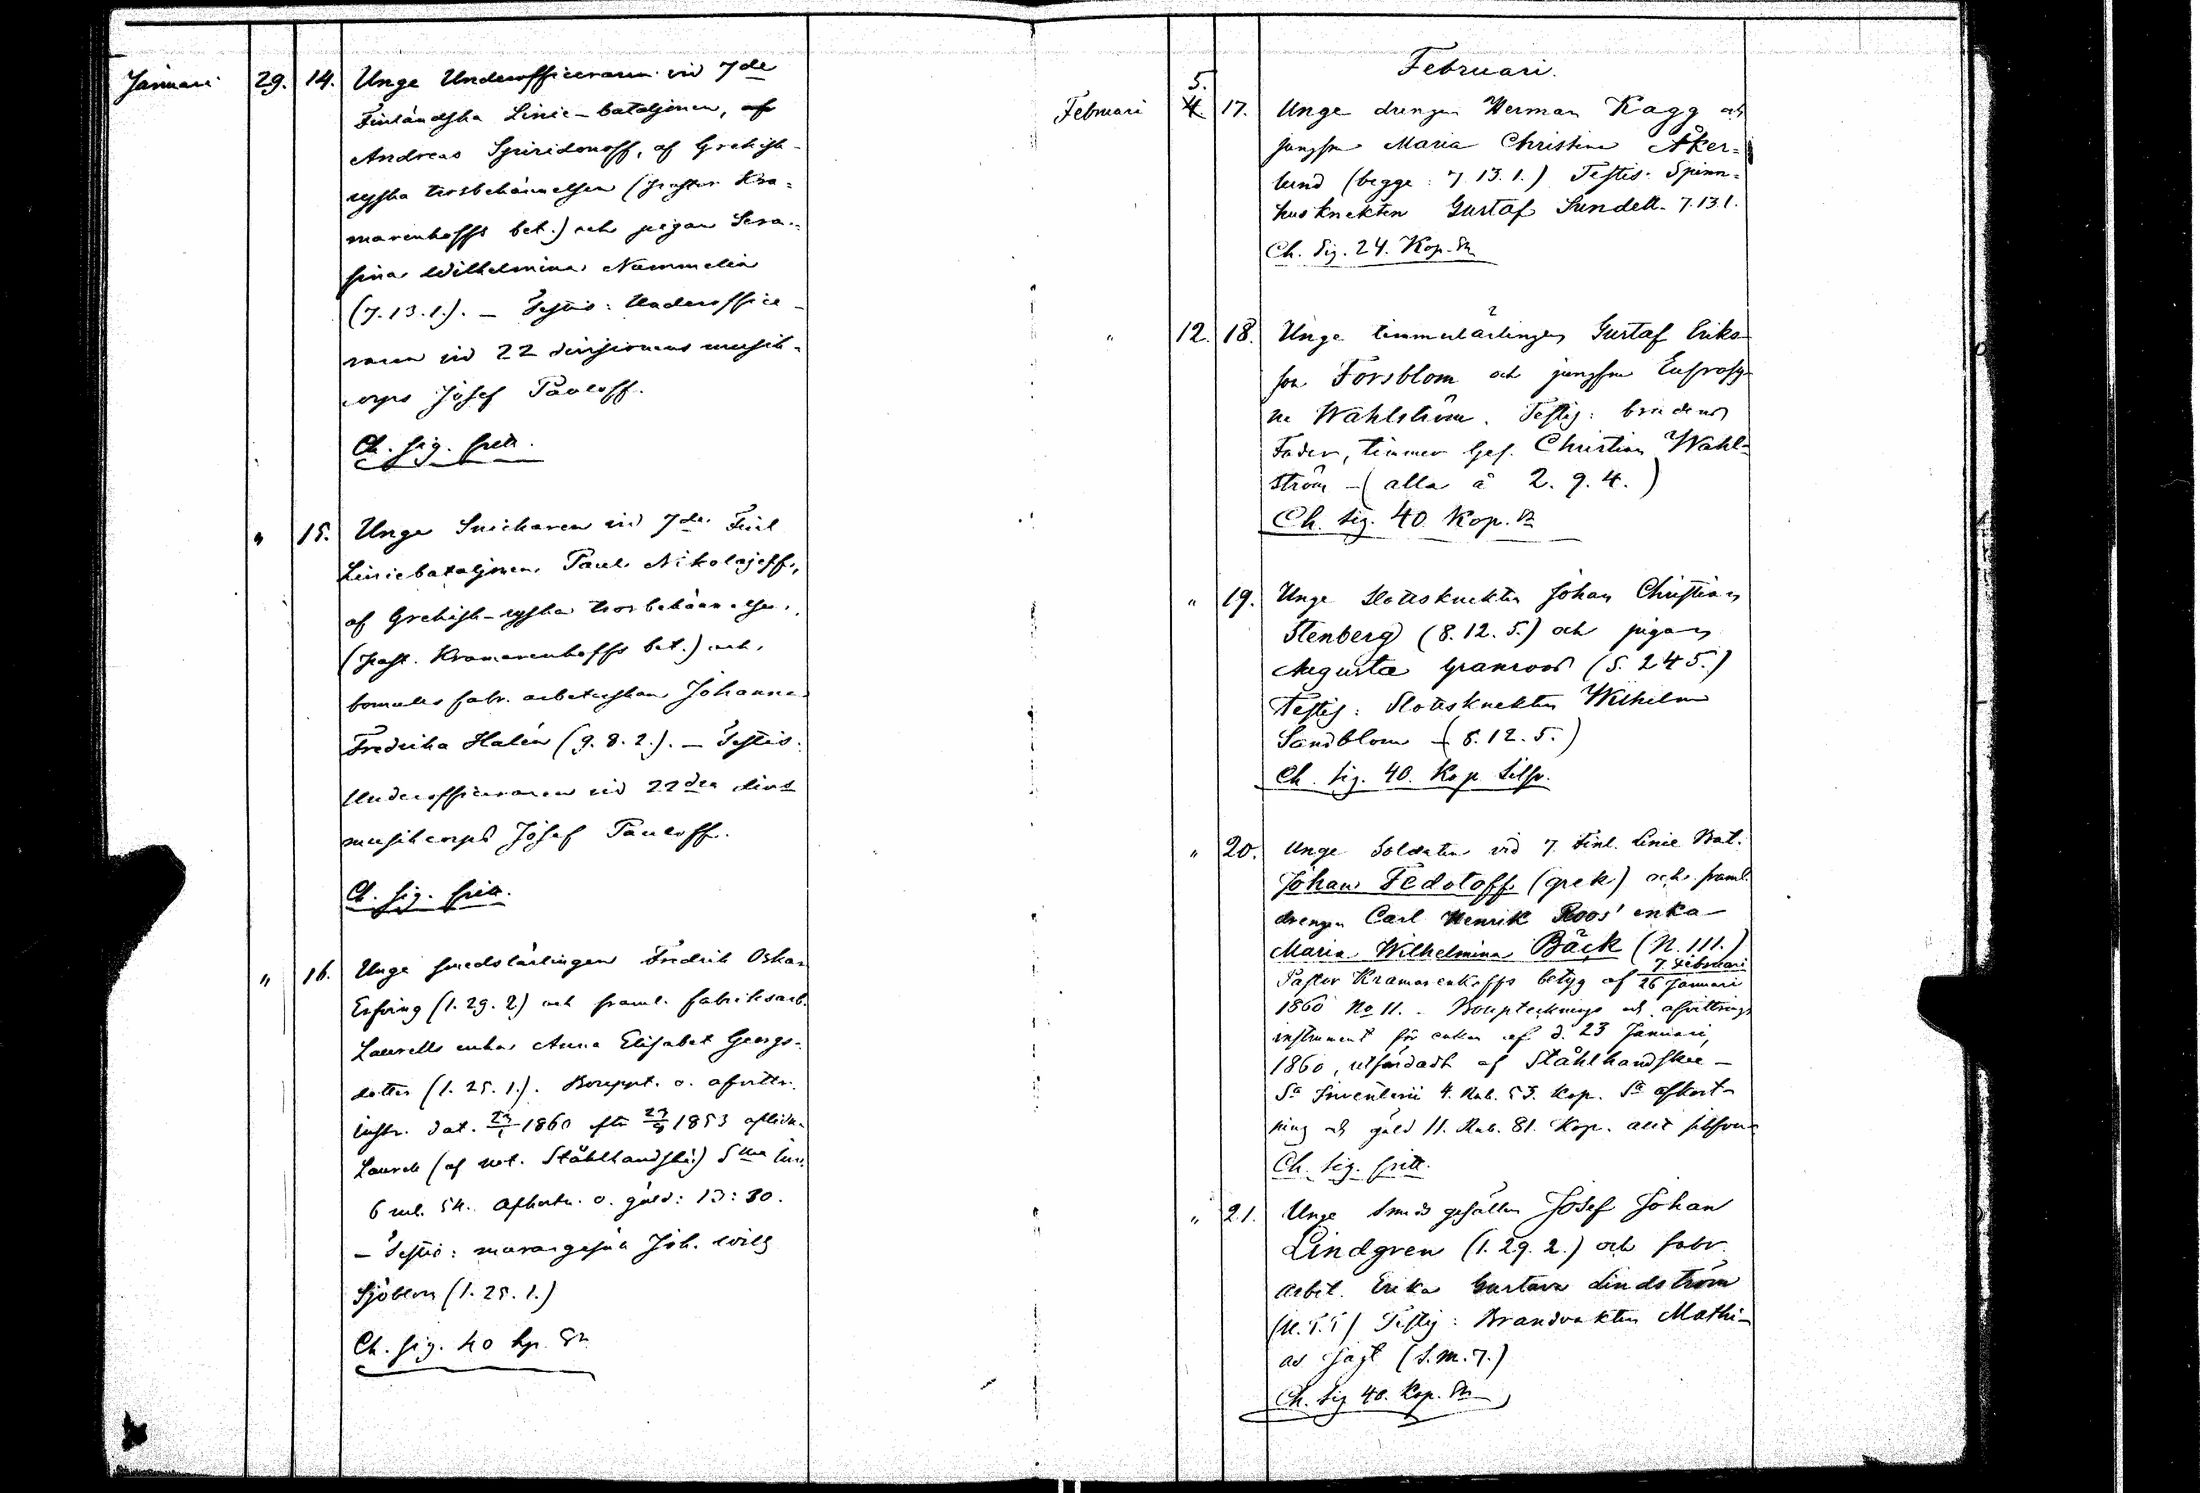 Januari 29. 14. Unge Underofficeraren vid 7de
Finländska Linie-bataljonen, af
Andreas Spiridonoff, af Grekisk-
ryska trosbekännelsen (pastor Kra-
marenkoffs bet.) och pigan Sera-
fina Wilhelmina Nummelin
(7.13.1.). – Testis: Underoffice-
raren vid 22 divisionens musik-
corps Josef Pauloff.
Ch. sig. fritt.
" 15. Unge Snickaren vid 7de Finl
Liniebataljonen Paul Nikolajeff,
af Grekisk-ryska trosbekännelsen,
(past. Kramarenkoffs bet.) och
bomulls fabr. arbeterskan Johanna
Fredrika Halén (9.8.2.). – Testis:
Underofficeraren vid 22dra divs
musikcorps Josef Pauloff.
Ch. sig. fritt.
" 16. Unge smedslärlingen Fredrik Oskar
Esping (1.29.2) och framl. fabriksarb.
Laurells enka Anna Elisabet Georgs-
dotter (1.25.1.). Bouppt. o. afvittr.
instr. dat. 23/1 1860 efter 1853 aflidn.
Laurell (af not. Stålhandske) Sma Inv.
6 rub. 54. Afkortn. o. gäld: 13:30.
– Testis: Joh. Wilh
Sjöblom (1.25.1.)
Ch. sig. 40 kp. Sr
Februari.
Februari 5. 4. 17. Unge drengen Herman Kagg och
jungfru Maria Christina Åker-
lund (begge: 7.13.1.) Testis: Spinn-
husknekten Gustaf Sundell 7.13.1.
Ch. Sig. 24. Kop. Sr
" 12. 18. Unge timmerlärlingen Gustaf Eriks-
son Forsblom och jungfru Eufrosy-
ne Wahlström. Testis: brudens
Fader, timmer Ges. Christian Wahl-
ström – (alla à 2.9.4.)
Ch. sig. 40 Kop. Sr
" 19. Unge Slottsknekten Johan Christian
Stenberg (8.12.5.) och pigan
Augusta Granroos (5.245.)
Testis: Slottsknekten Wilhelm
Sandblom – (8.12.5.)
Ch. sig. 40. Kop Silfv.
" 20. Unge Soldaten vid 7. Finl. Linie Bat.
Johan Fedotoff (grek) och framl.
drengen Carl Henrik Roos' enka
Maria Wilhelmina Bäck (N. 111.)
Pastor Kramarenkoffs betyg af 7 Februari 26 Januari
1860 No 11. – Bouptecknings och afvittrings
instrument för enkan af d. 23 Januari,
1860, utfärdadt af Stålhandske –
Sa Inventarii 4. Rub. 53. Kop. Sa afkort-
ning och gäld 11. Rub. 81. Kop. allt silfver
Ch. sig. fritt.
" 21. Unge Smeds gesällen Josef Johan
Lindgren (1.29.2.) och fabr.
arbet. Erika Gustava Lindström
Testis: Brandvakten Mathi-
as Jagt (S.M.7.)
Ch. Sig 40. Kop. Sr